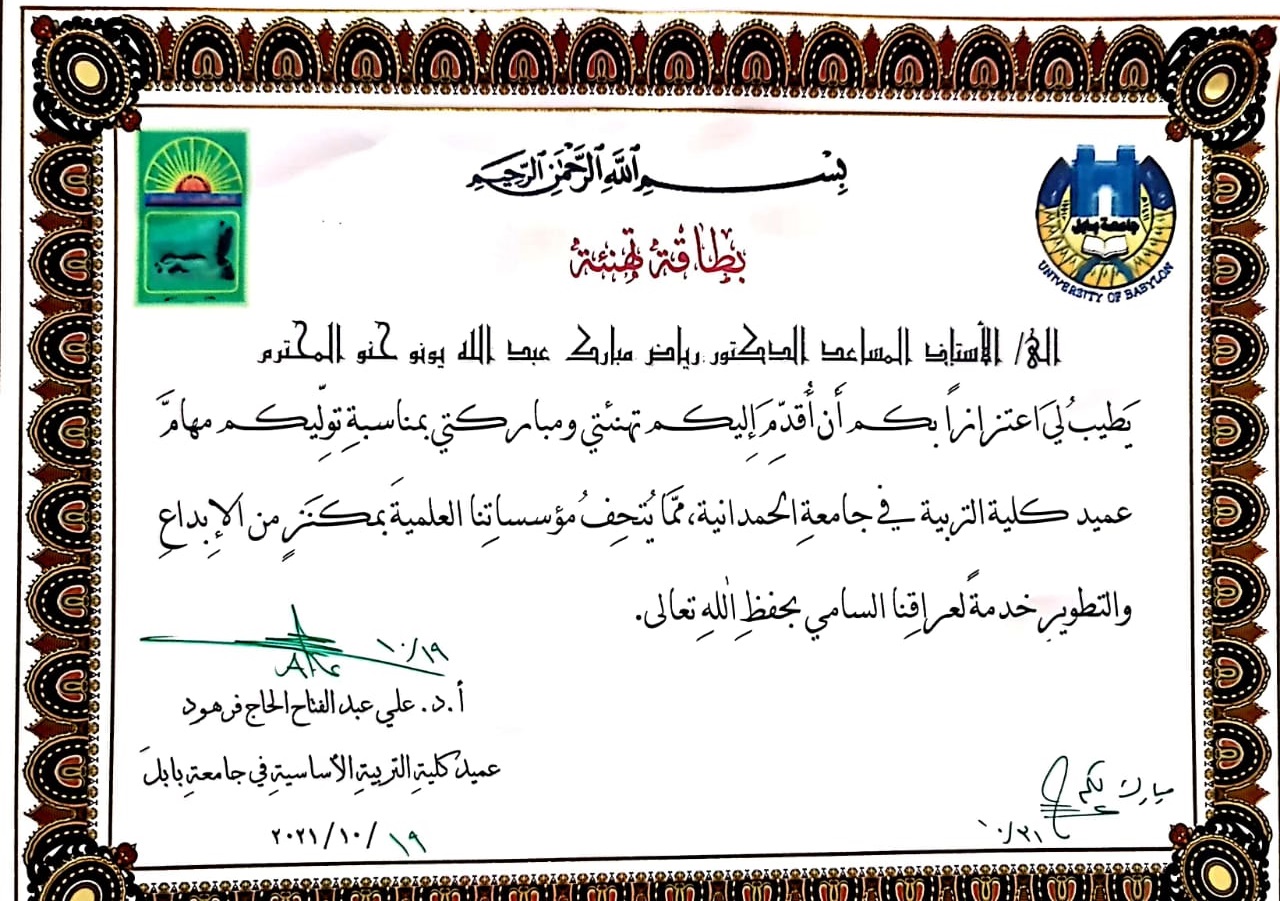 بِسْمِ ٱللَّهِ ٱلرَّحْمَٰنِ ٱلرَّحِيمِ
جامعة بابل
UNIVERSITY OF BABYLON
بطاقة تهنئة
الى/ الأستاذ المساعد الدكتور رياض مبارك عبد الله يونو حنو المحترم
يَطيبُ لي اعتزازاً بكم أَن أُقدِّمَ إِليكم تهنئتي ومباركتي بمناسبةِ تولِّيكم مهامَّ
عميد كلية التربية في جامعةِ الحمدانية، ممَّا يُتحِفُ مؤسساتِنا العلميةَ بمكنَزٍ من الإِبداعِ
والتطويرِ خدمةً لعراقِنا السامي بحفظِ اللهِ تعالى.
١٠/١٩
أ.د. علي عبد الفتاح الحاج فرهود
عميدُ كليةِ التربيةِ الأساسيةِ في جامعةِ بابلَ
١٩ /٢٠٢١/١٠
مبارك لكم
١٠/٣١